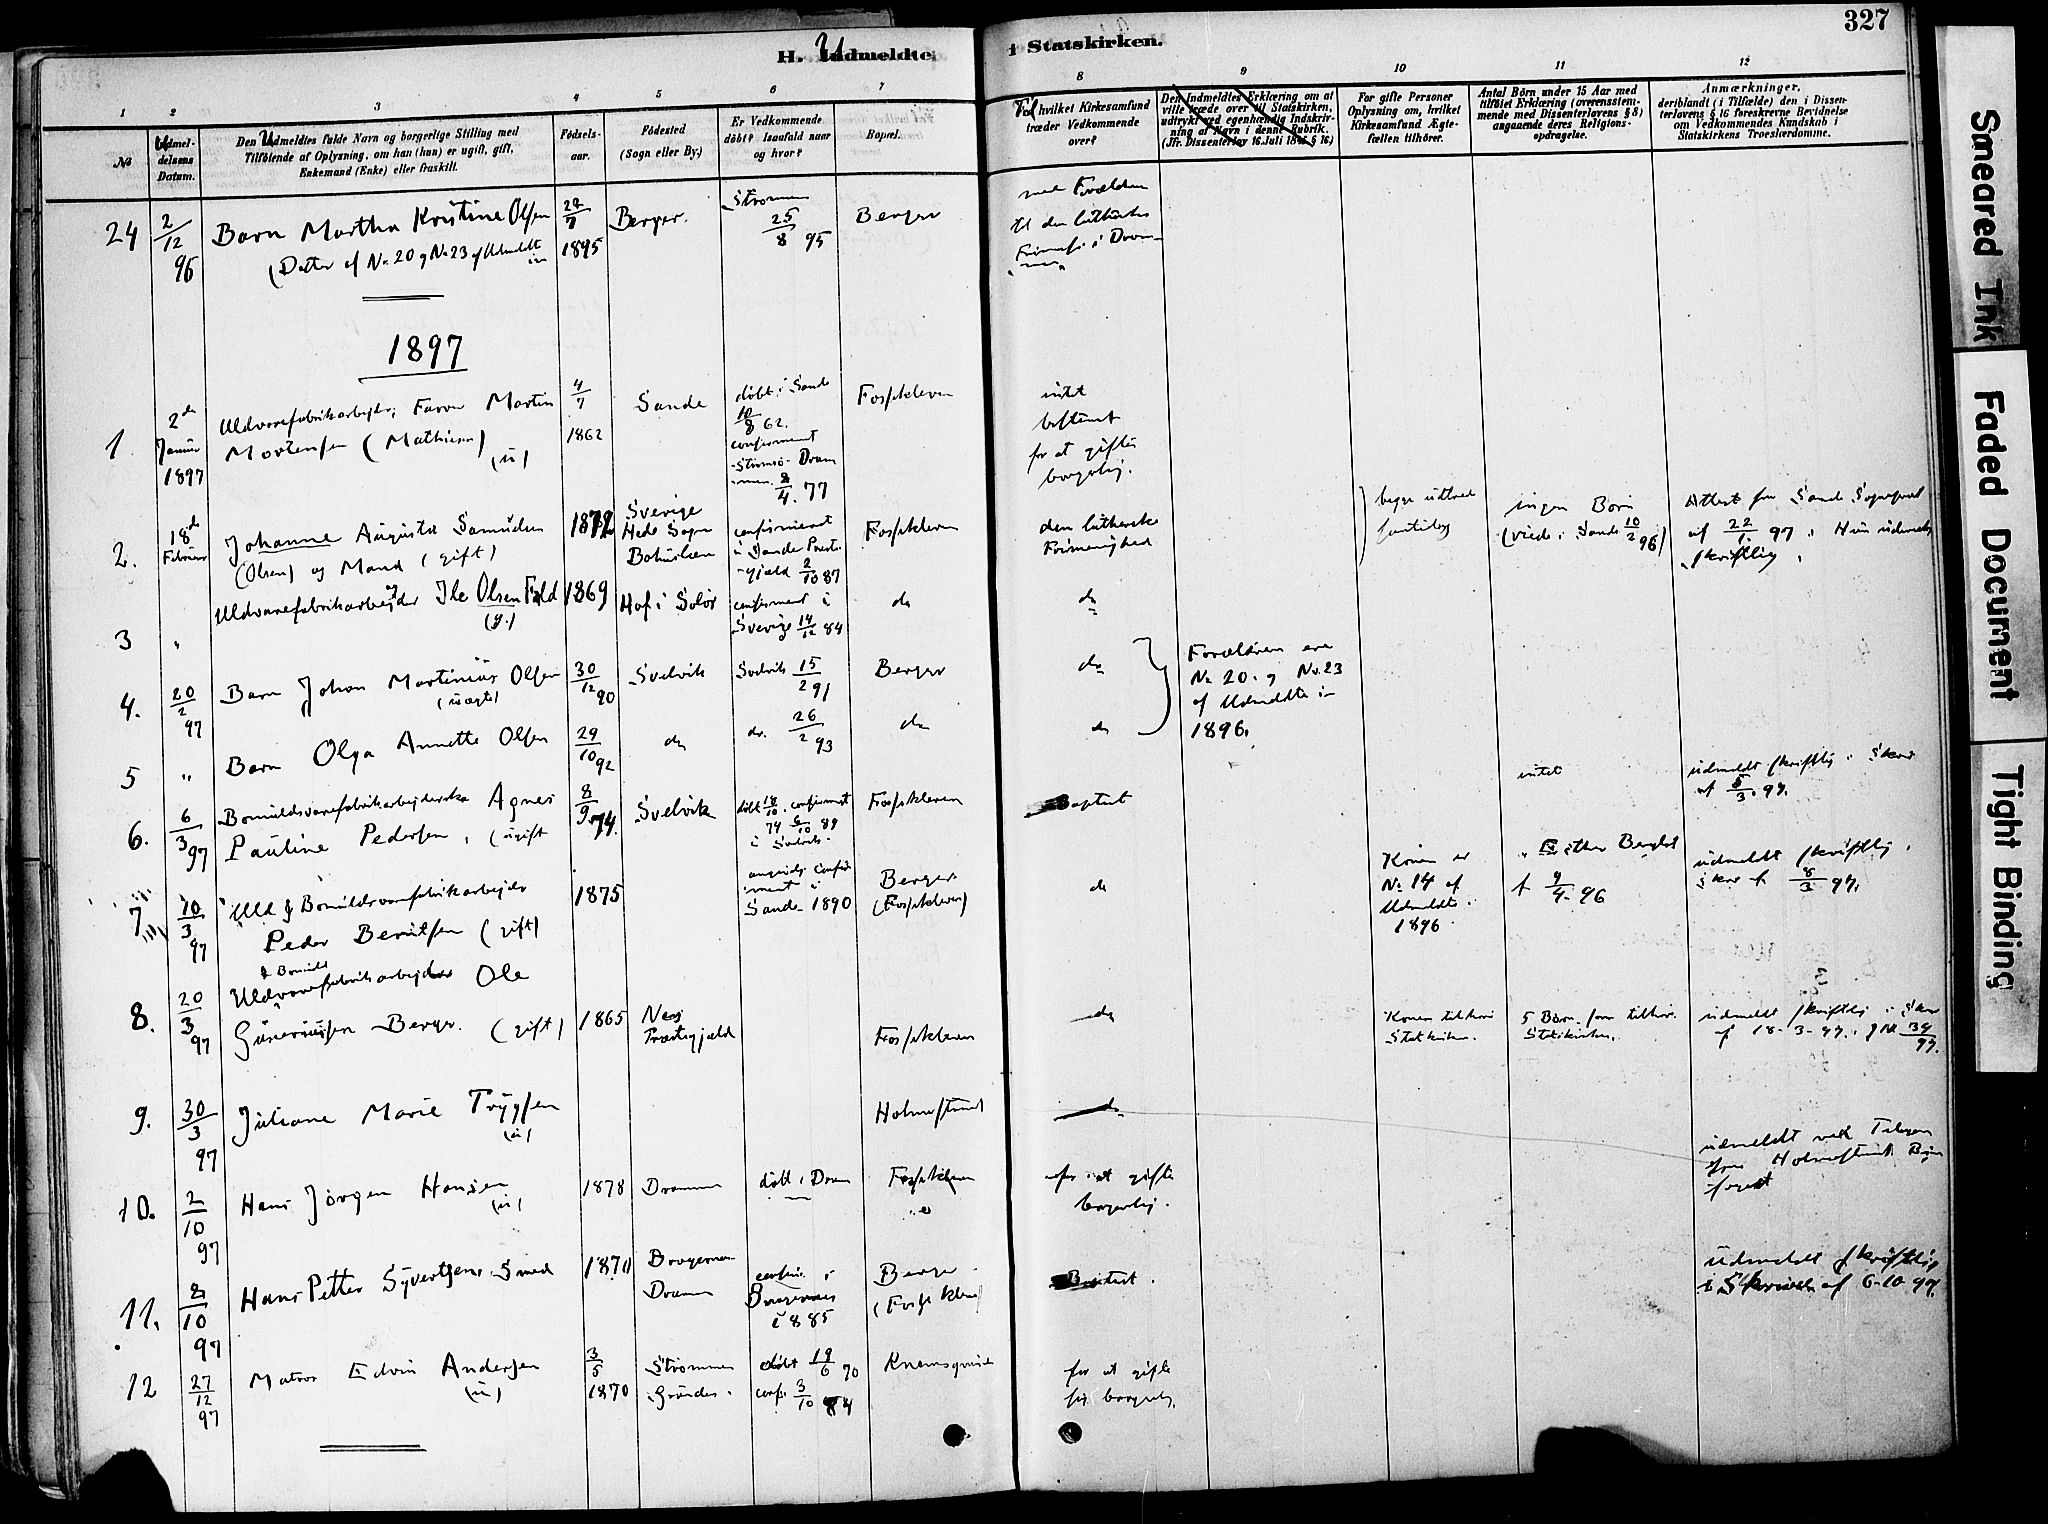 327
H. Udmeldte
i Statskirken.
1
2
3
4
5
6
7
8
9
10
11
12
No
Udmel-
delsens
Datum.
Den Udmeldtes fulde Navn og borgerlige Stilling med
Tilføiende af Oplysning, om han (hun) er ugift, gift,
Enkemand (Enke) eller fraskilt.
Fødsels-
aar.
Fødested
(Sogn eller By.)
Er Vedkommende
døbt? Isaafald naar
og hvor?
Bopæl.
Til hvilket Kirkesamfund
træder Vedkommende
over?
Den Indmeldtes Erklæring om at
ville træde over til Statskirken,
udtrykt ved egenhændig Indskriv-
ning af Navn i denne Rubrik.
(Jfr. Dissenterlov 16. Juli 1845 § 16)
For gifte Personer
Oplysning om, hvilket
Kirkesamfund Ægte-
fællen tilhører.
Antal Börn under 15 Aar med
tilføiet Erklæring (overensstem-
mende med Dissenterlovens § 8)
angaaende deres Religions-
opdragelse.
Anmærkninger,
deriblandt (i Tilfælde) den i Dissen-
terlovens § 16 foreskrevne Bevidnelse
om Vedkommendes Kundskab i
Statskirkens Troeslærdomme.
24
2/12 96
Barn Martha Kristine Olsen
(Datter af No 20 og No 23 af Udmeldte
1895
Berger.
Strømmen
25/8 95
Berger
med Forældrene
til den lutherske
Frimenigh. i Dram-
men
1897
1.
2den
Januar
1897
Uldvarefabrikarbeider, Farver Martin
Mortensen (Mathisen)
(u)
4/7
1862
Sande
døbt i Sande
10/8 62.
confirmeret
Strømsø Dram
men. 8/4. 77
Fossekleven
intet
bestemt
for at giftes
borgerlig.
2.
18de
Februar
Johanne Augusta Samuelsen
(Olsen) og Mand (gift)
1872
Sverige
Hede Sogn
Bohuslæn
confirmeret
i Sande Præste-
gjæld 2/10 87
Fossekleven
den lutherske
Frimenighed
begge udtraadt
samtidig
ingen Børn
(viede i Sande 10/2 96)
Attest fra Sande Sognepræst
af 22/1. 97. Hun udmeldt
skriftlig.
3
"
Uldvarefabrikarbeider Ole Olsen Fald
(g.)
1869
Hof i Solør
confirmeret i
Sverige 14/12 84
do
do
4.
20/2 97
Barn Johan Martinius Olsen
(uægte)
30/12 90
Svelvik
Svelvik 15/2 91
Berger
do
Forældrene ere
No 20. og No. 23
af Udmeldte i
1896.
5
"
Barn Olga Annette Olsen
29/10 92
do
do. 26/2 93
do
do
6.
6/3 97
Bomuldsvarefabrikarbeiderske Agnes
Pauline Pedersen, (ugift
8/9. 74.
Svelvik
døbt 18/10 74 confirmeret 6/10 89
i Svelvik.
Fossekleven
Baptist
intet
udmeldt skriftlig i Skr.
af 5/3. 97.
7
10/3 97
Uld & Bomuldsvarefabrikarbejder
Peder Berntsen (gift)
1875
angivelig confir-
meret i
Sande 1890
Berger
(Fossekleven)
do
Konen er
No 14 af
Udmeldte
1896
Esther Berglot
f 9/4 96
udmeldt skriftlig,
Skr af 8/3 97.
8.
20/3 97
& Bomuld
Uldvarefabrikarbejder Ole
Guneriussen Berger. (gift)
1865
Næs
Præstegjæld
Fossekleven
do
Konen tilhører
Statskirken.
5 Børn som tilhør.
Statskirken.
udmeldt skriftlig i Skr
af 18-3-97. J No 34/97.
9.
30/3 97
Juliane Marie Trygsen
(u)
Holmestrand
do
udmeldt ved Telegram
fra Holmestrand By-
foged
10.
2/10 97
Hans Jörgen Hansen
(u)
1878
Drammen
døbt i Dram
Fossekleven
for at giftes
borgerlig.
11.
8/10 97
Hans Petter Syvertsen Smed
1870
Bragernes
Dramm
confir. i
Bragernes
i 1885
Berger
(Fossekleven)
Baptist.
udmeldt skriftlig
i Skrivelse af 6-10 97.
12
27/12 97
Matros Edvin Andersen
(u)
3/5
1870
Strømmen
Grunden.
døbt 19/6 70
conf. 3/10 84
Knemsgrund
for at gifte
sig borgerlig.
Smeared Ink
Faded Document
Tight Binding